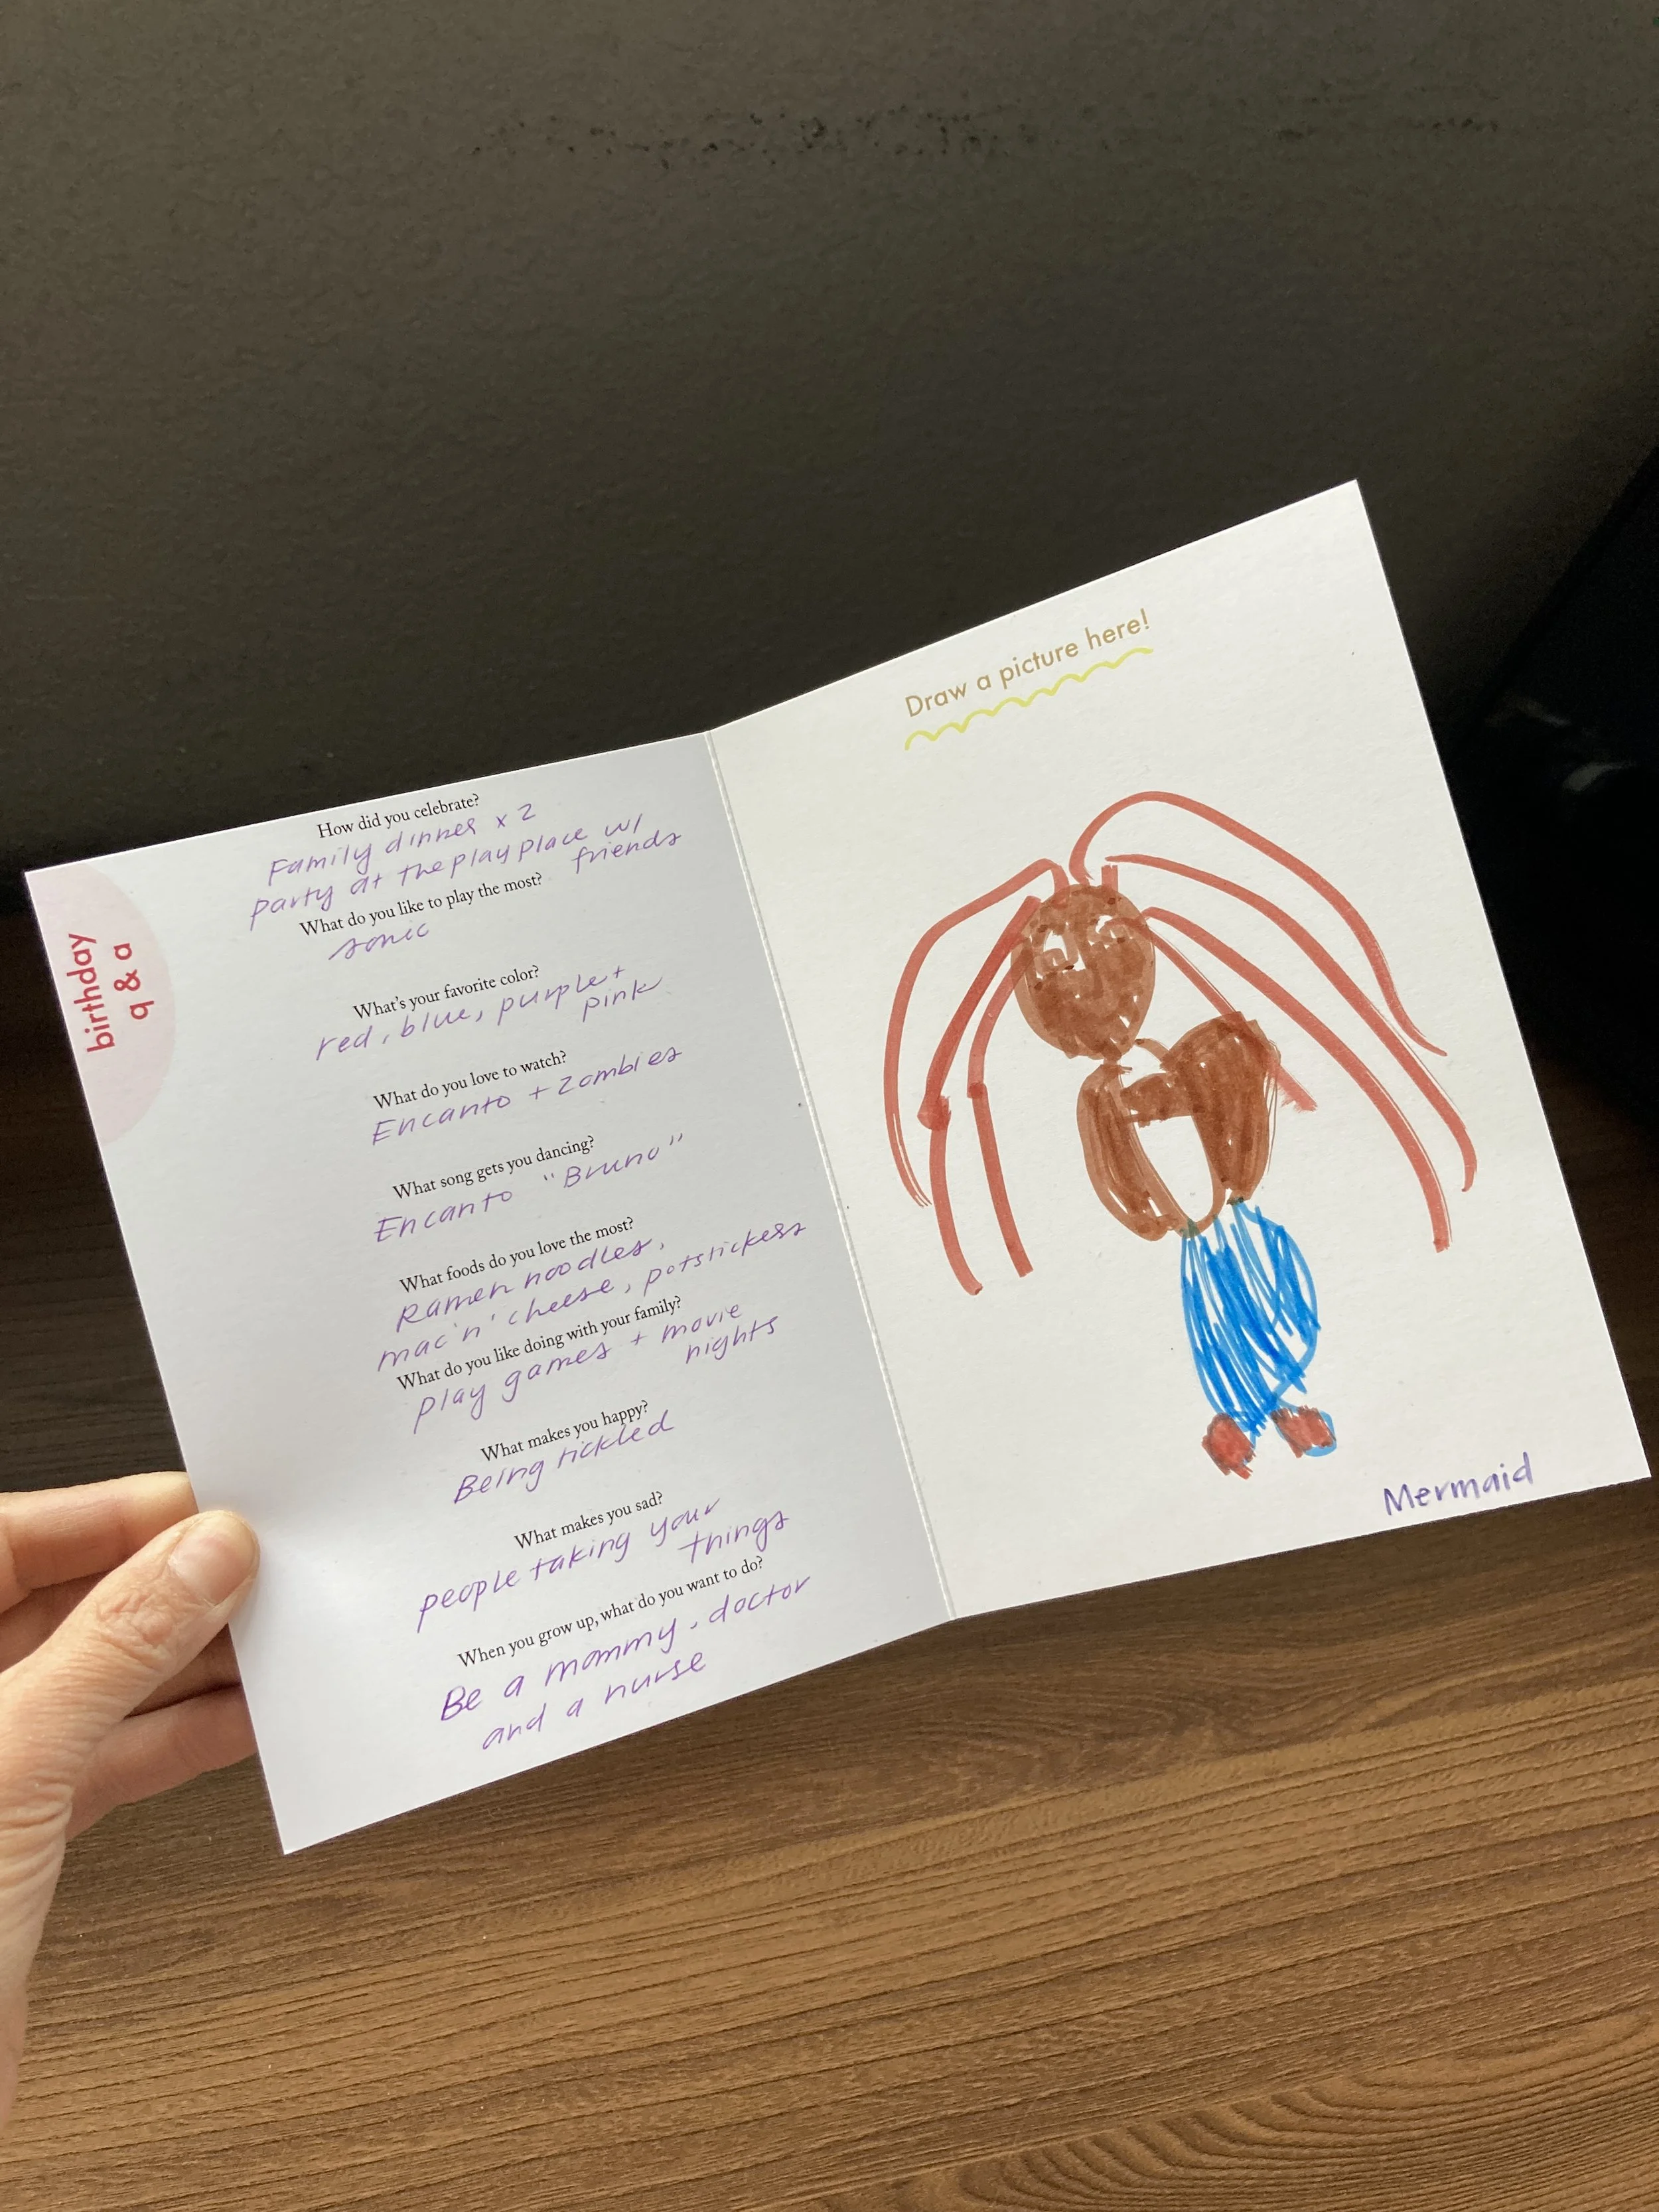 birthday
q & a
How did you celebrate?
Family dinner x 2
party at the play place w/
friends
What do you like to play the most?
sonic
What's your favorite color?
red, blue, purple +
pink
What do you love to watch?
Encanto + Zombies
What song gets you dancing?
Encanto "Bruno"
What foods do you love the most?
Ramen noodles,
mac 'n' cheese, potstickers
What do you like doing with your family?
play games + movie
nights
What makes you happy?
Being tickled
What makes you sad?
people taking your
things
When you grow up, what do you want to do?
Be a mommy, doctor
and a nurse
Draw a picture here!
Mermaid